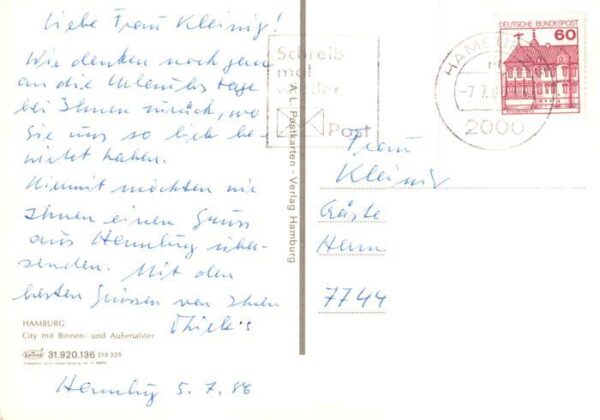 Liebe Frau Kleinig!
Wir denken noch gern
an die Urlaubstage
bei Ihnen zurück, wo
Sie uns so lieb be-
wirtet haben.
Hiermit möchten wir
Ihnen einen Gruss
aus Hamburg über-
senden. Mit den
besten Grüssen von Ihren
Thiele's
HAMBURG
City mit Binnen- und Außenalster
31.920.136 218 325
Hamburg 5.7.86
A. L. Postkarten - Verlag Hamburg
Schreib
mal
wieder
Post
HAMBURG
-7.7.8
2000
DEUTSCHE BUNDESPOST
60
Frau
Kleinig
7744